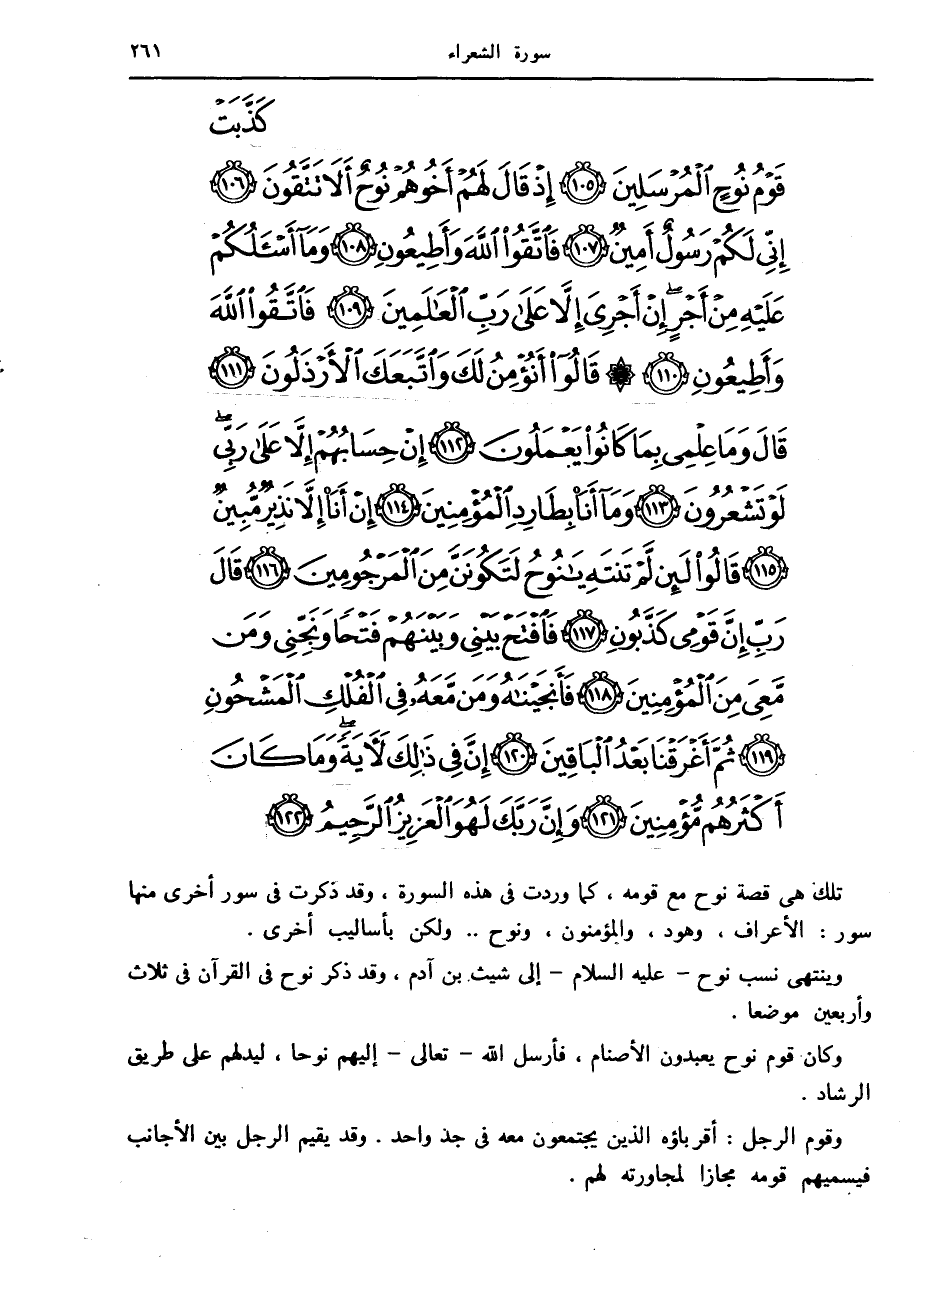 سورة الشعراء ٢٦١
كَذَّبَتْ
قَوْمُ نُوحٍ ٱلْمُرْسَلِينَ ﴿١٠٥﴾ إِذْ قَالَ لَهُمْ أَخُوهُمْ نُوحٌ أَلَا تَتَّقُونَ ﴿١٠٦﴾
إِنِّى لَكُمْ رَسُولٌ أَمِينٌ ﴿١٠٧﴾ فَٱتَّقُوا۟ ٱللَّهَ وَأَطِيعُونِ ﴿١٠٨﴾ وَمَآ أَسْـَٔلُكُمْ
عَلَيْهِ مِنْ أَجْرٍ ۖ إِنْ أَجْرِىَ إِلَّا عَلَىٰ رَبِّ ٱلْعَـٰلَمِينَ ﴿١٠٩﴾ فَٱتَّقُوا۟ ٱللَّهَ
وَأَطِيعُونِ ﴿١١٠﴾ ۞ قَالُوٓا۟ أَنُؤْمِنُ لَكَ وَٱتَّبَعَكَ ٱلْأَرْذَلُونَ ﴿١١١﴾
قَالَ وَمَا عِلْمِى بِمَا كَانُوا۟ يَعْمَلُونَ ﴿١١٢﴾ إِنْ حِسَابُهُمْ إِلَّا عَلَىٰ رَبِّى ۖ
لَوْ تَشْعُرُونَ ﴿١١٣﴾ وَمَآ أَنَا۠ بِطَارِدِ ٱلْمُؤْمِنِينَ ﴿١١٤﴾ إِنْ أَنَا۠ إِلَّا نَذِيرٌ مُّبِينٌ
﴿١١٥﴾ قَالُوا۟ لَئِن لَّمْ تَنتَهِ يَـٰنُوحُ لَتَكُونَنَّ مِنَ ٱلْمَرْجُومِينَ ﴿١١٦﴾ قَالَ
رَبِّ إِنَّ قَوْمِى كَذَّبُونِ ﴿١١٧﴾ فَٱفْتَحْ بَيْنِى وَبَيْنَهُمْ فَتْحًا وَنَجِّنِى وَمَن
مَّعِىَ مِنَ ٱلْمُؤْمِنِينَ ﴿١١٨﴾ فَأَنجَيْنَـٰهُ وَمَن مَّعَهُۥ فِى ٱلْفُلْكِ ٱلْمَشْحُونِ
﴿١١٩﴾ ثُمَّ أَغْرَقْنَا بَعْدُ ٱلْبَاقِينَ ﴿١٢٠﴾ إِنَّ فِى ذَٰلِكَ لَـَٔايَةً ۖ وَمَا كَانَ
أَكْثَرُهُم مُّؤْمِنِينَ ﴿١٢١﴾ وَإِنَّ رَبَّكَ لَهُوَ ٱلْعَزِيزُ ٱلرَّحِيمُ ﴿١٢٢﴾
تلك هى قصة نوح مع قومه ، كما وردت فى هذه السورة ، وقد ذكرت فى سور أخرى منها
سور : الأعراف ، وهود ، والمؤمنون ، ونوح .. ولكن بأساليب أخرى .
وينتهى نسب نوح – عليه السلام – إلى شيث بن آدم ، وقد ذكر نوح فى القرآن فى ثلاث
وأربعين موضعا .
وكان قوم نوح يعبدون الأصنام ، فأرسل الله – تعالى – إليهم نوحا ، ليدلهم على طريق
الرشاد .
وقوم الرجل : أقرباؤه الذين يجتمعون معه فى جد واحد . وقد يقيم الرجل بين الأجانب
فيسميهم قومه مجازا لمجاورته لهم .